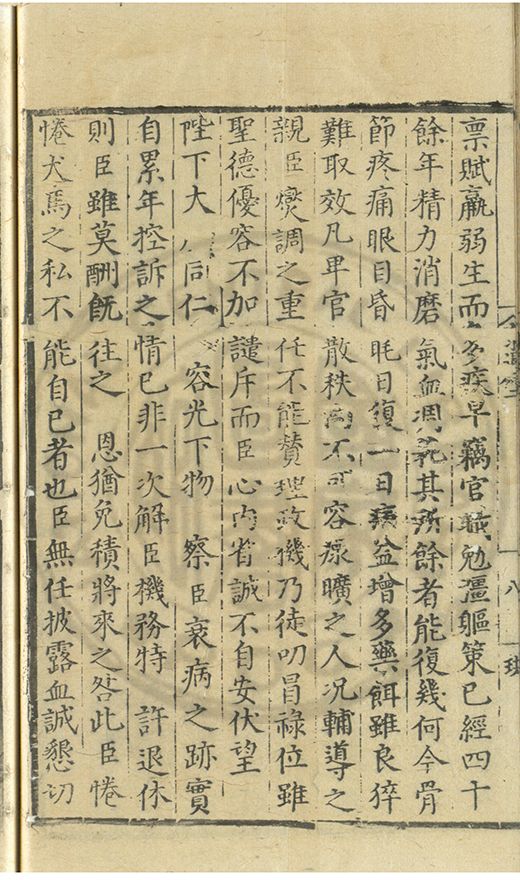 禀賦羸弱生而多疾早竊官職勉彊驅策已經四十
餘年精力消磨氣血凋耗其所餘者能復幾何今骨
節疼痛眼目昏眊日復一日疾益增多藥餌雖良猝
難取效凡畀官散秩尚不可容瘝曠之人况輔導之
親臣燮調之重任不能賛理政機乃徒叨冒祿位雖
聖德優容不加譴斥而臣心內省誠不自安伏望
陛下大同仁容光下物察臣衰病之跡實
自累年控訴之情已非一次解臣機務特許退休
則臣雖莫酬旣往之恩猶免積將來之咎此臣惓
惓犬馬之私不能自已者也臣無任披露血誠懇切
八